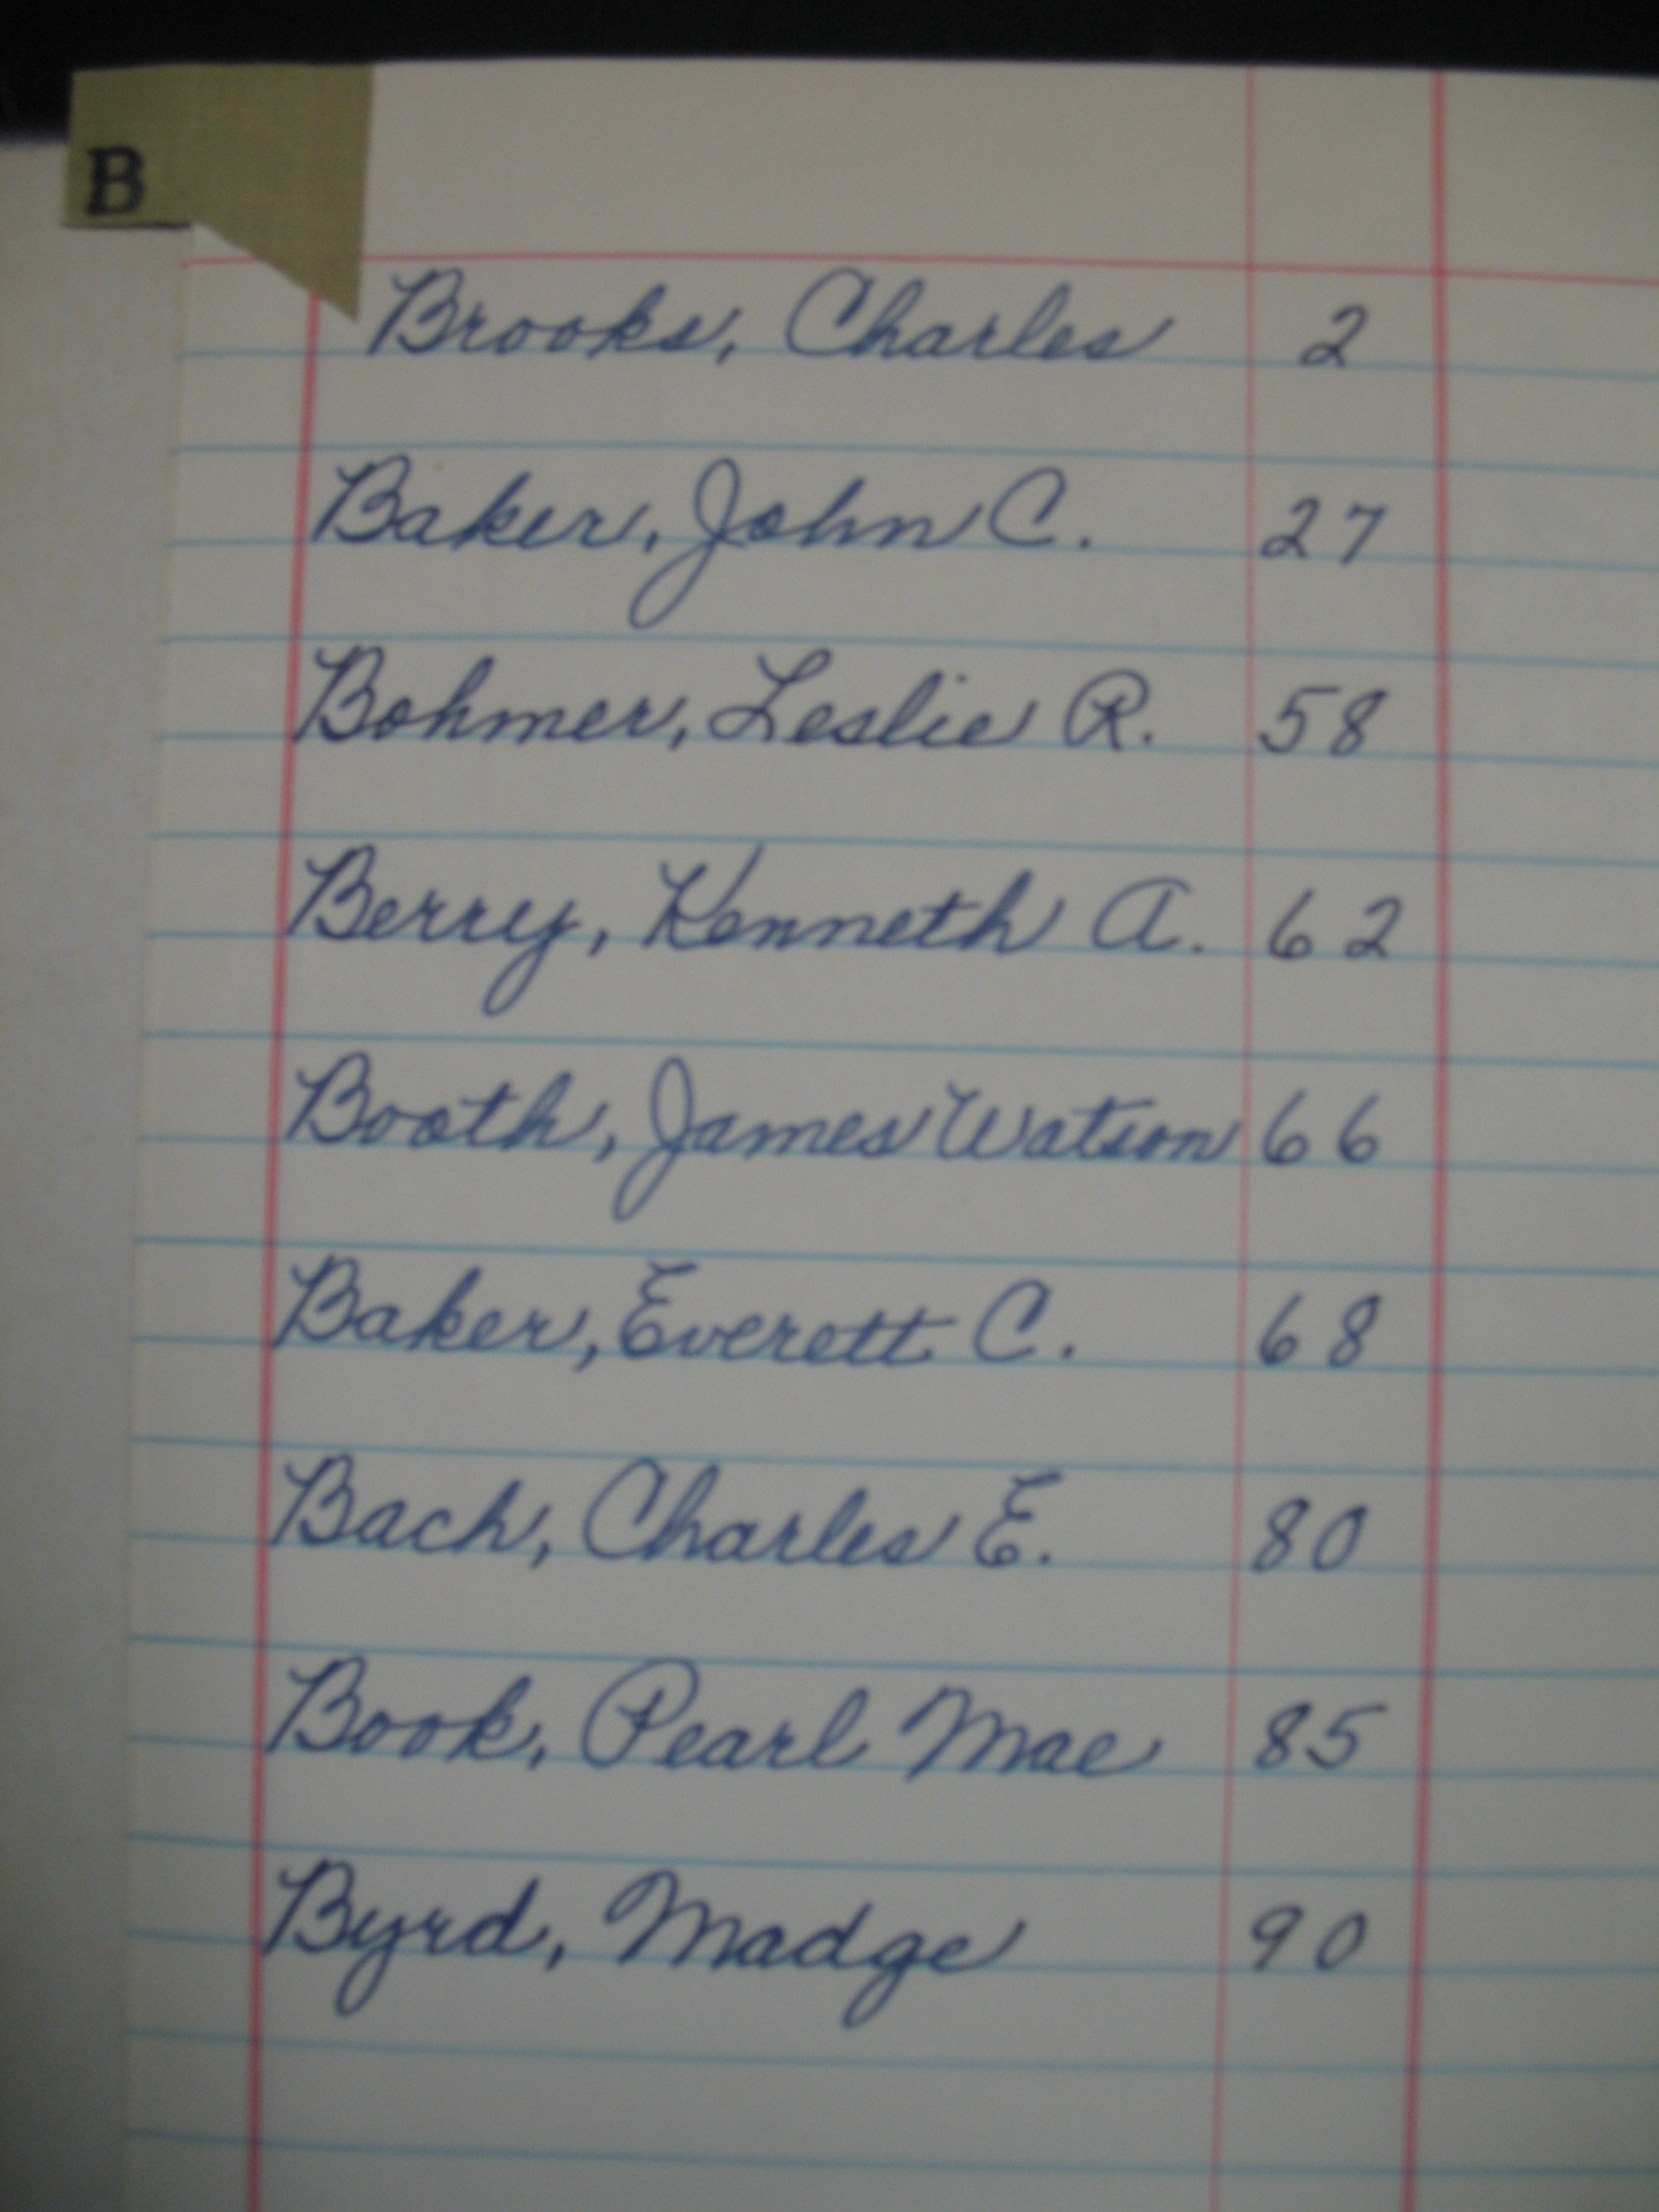 B
Brooks, Charles 2
Baker, John C. 27
Bohmer, Leslie R. 58
Berry, Kenneth A. 62
Booth, James Watson 66
Baker, Everett C. 68
Bach, Charles E. 80
Book, Pearl Mae 85
Byrd, Madge 90